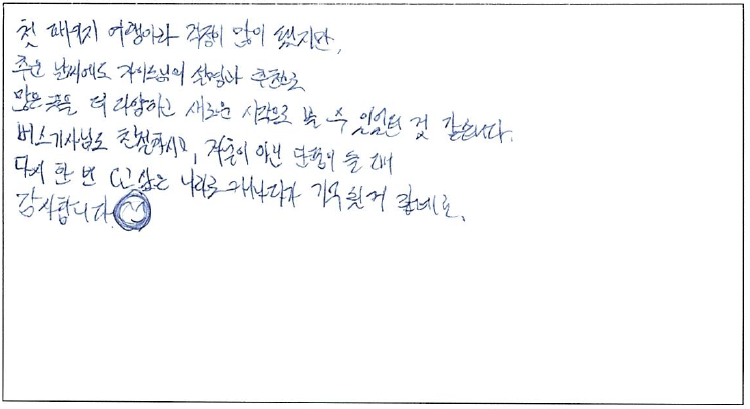 첫 패키지 여행이라 걱정이 많이 됐지만,
추운 날씨에도 가이드님의 설명과 추천으로
많은 곳을 더 다양하고 새로운 시각으로 볼 수 있었던 것 같습니다.
버스기사님도 친절하시고, 겨울이 아닌 단풍이 들 때
다시 한 번 오고 싶은 나라로 캐나다가 기억될거 같네요.
감사합니다